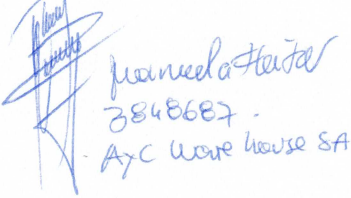 Manuela Heitor
3848687.
AyC Ware house SA